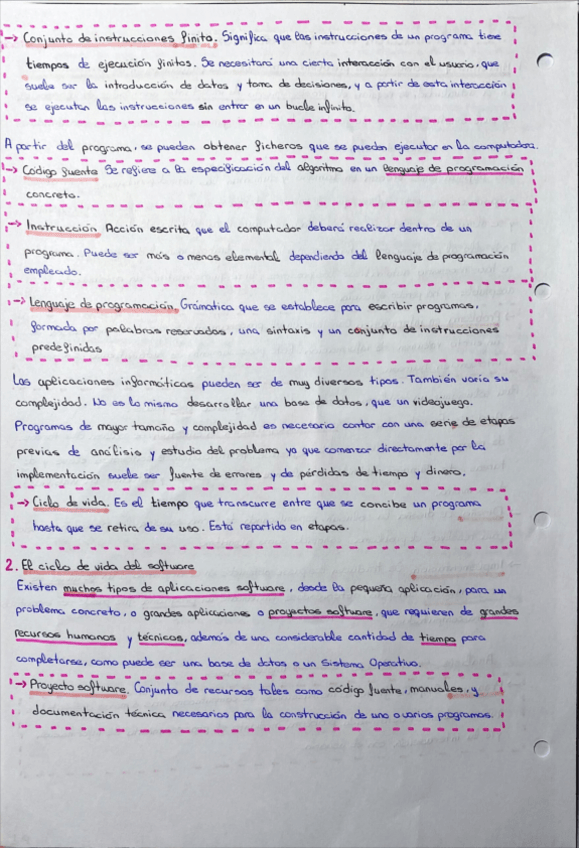 → Conjunto de instrucciones finito. Significa que las instrucciones de un programa tiene
tiempos de ejecución finitos. Se necesitará una cierta interacción con el usuario, que
suele ser la introducción de datos y toma de decisiones, y a partir de esta interacción
se ejecutan las instrucciones sin entrar en un bucle infinito.
A partir del programa, se pueden obtener ficheros que se pueden ejecutar en la computadora.
→ Código fuente Se refiere a la especificación del algoritmo en un lenguaje de programación
concreto.
→ Instrucción Acción escrita que el computador deberá realizar dentro de un
programa. Puede ser más o menos elemental dependiendo del lenguaje de programación
empleado.
→ Lenguaje de programación, Gramática que se establece para escribir programas,
formada por palabras reservadas, una sintaxis y un conjunto de instrucciones
predefinidas
Las aplicaciones informáticas pueden ser de muy diversos tipos. También varia su
complejidad. No es lo mismo desarrollar una base de datos, que un videojuego.
Programas de mayor tamaño y complejidad es necesario contar con una serie de etapas
previas de análisis y estudio del problema ya que comenzar directamente por la
implementación suele ser fuente de errores y de pérdidas de tiempo y dinero.
→ Ciclo de vida. Es el tiempo que transcurre entre que se concibe un programa
hasta que se retira de su uso. Está repartida en etapas.
2. El ciclo de vida del software
Existen muchos tipos de aplicaciones software, desde la pequeña aplicación, para un
problema concreto, o grandes aplicaciones o proyectos software, que requieren de grandes
recursos humanos y técnicos, además de una considerable cantidad de tiempo para
completarse, como puede ser una base de datos o un Sistema Operativo.
→ Proyecto software. Conjunto de recursos tales como código fuente, manuales, y
documentación técnica necesarios para la construcción de uno o varios programas.